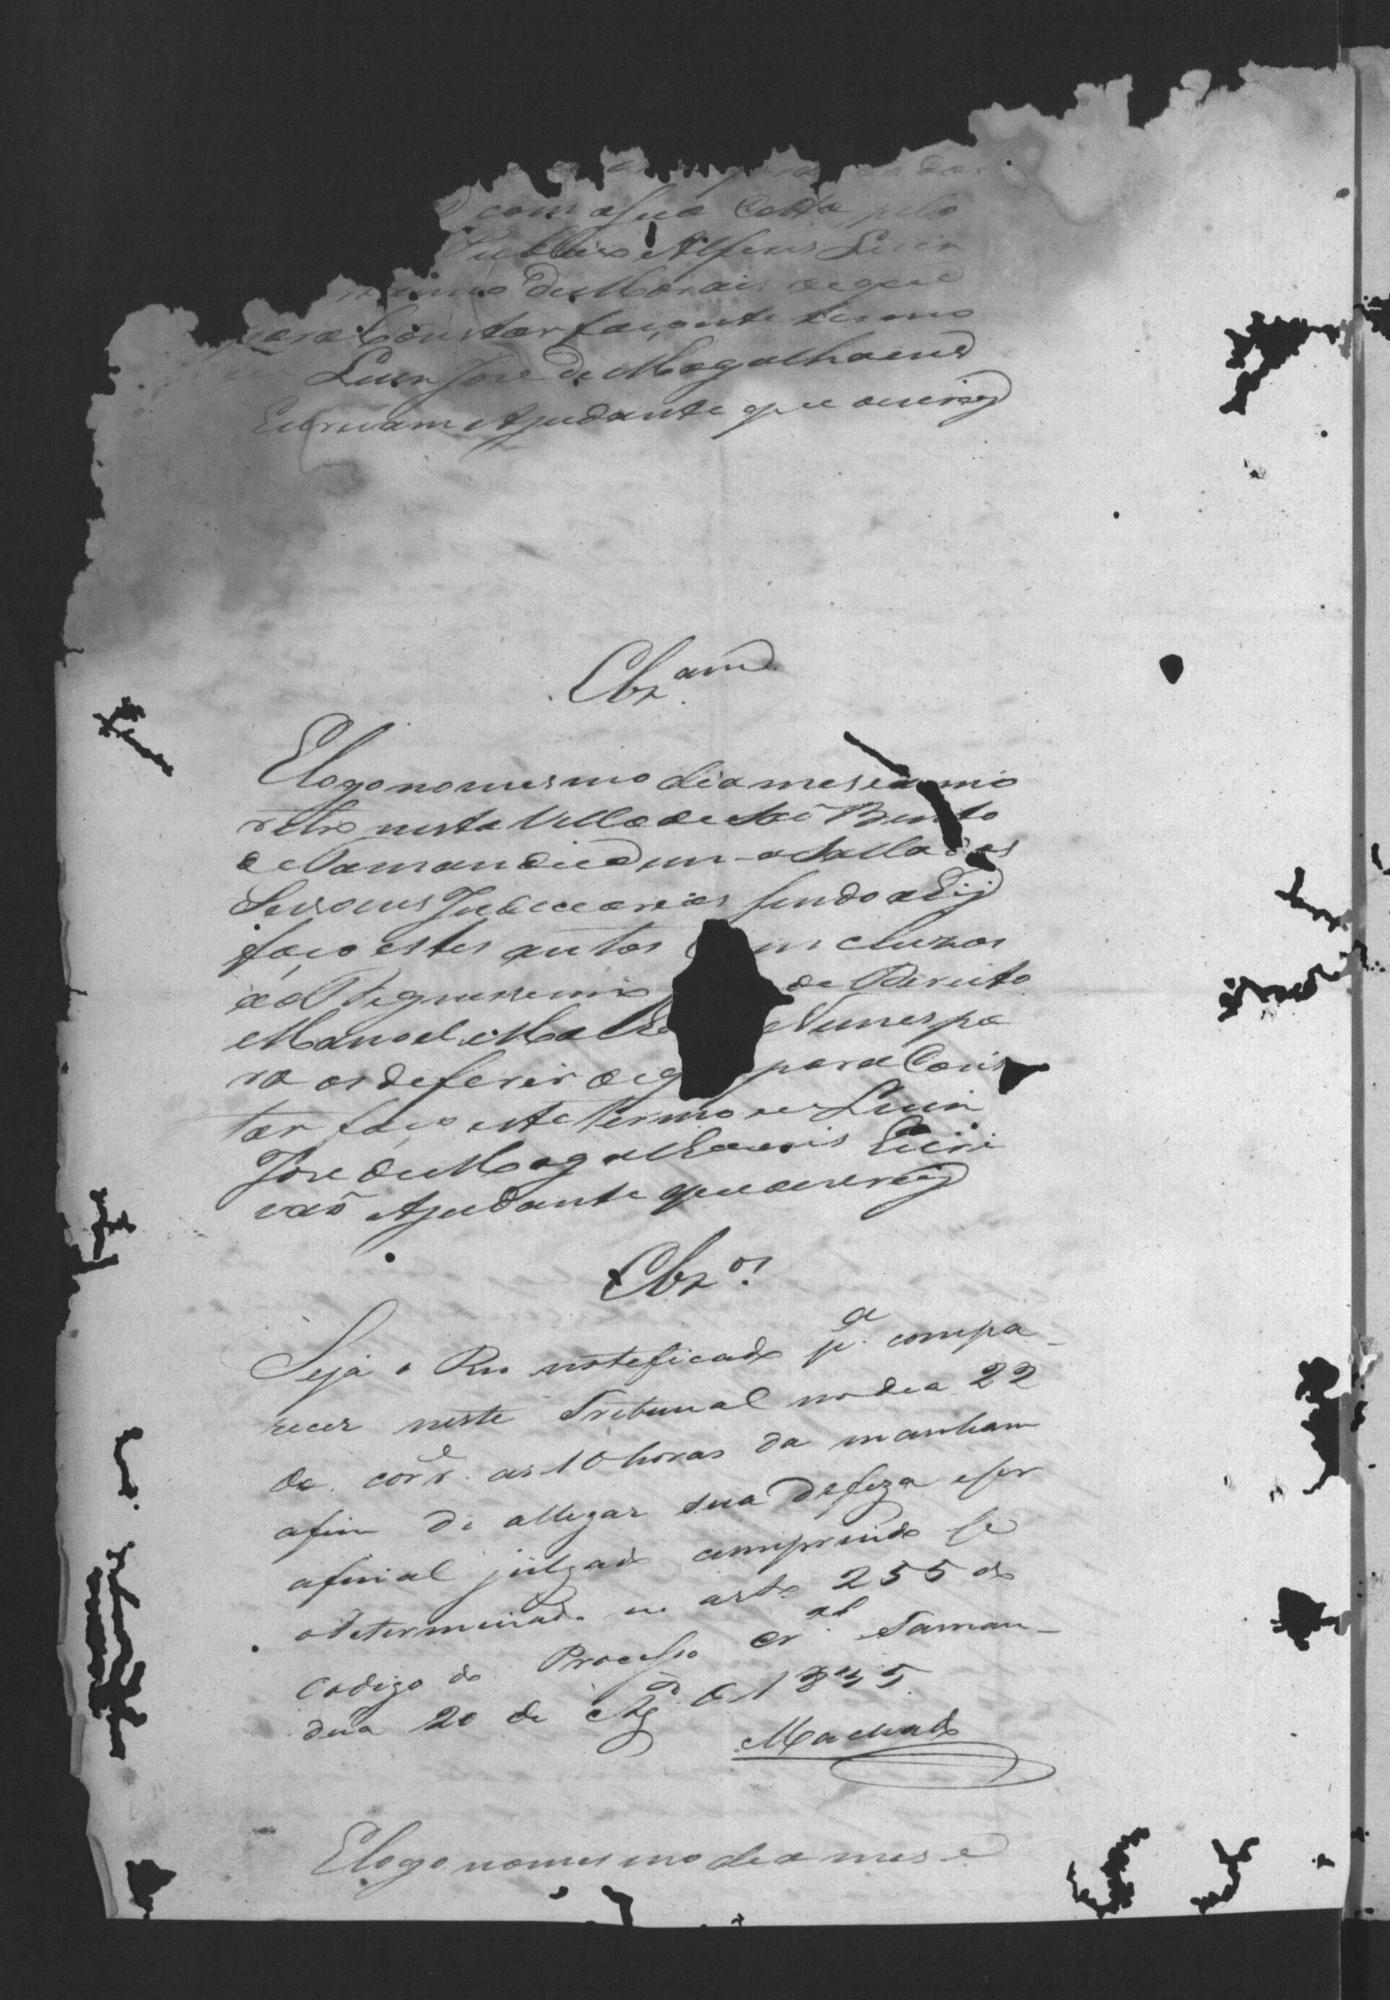 com a sua Cotta pelo
Publico Alferes Luiz
de Morais de que
para Constar faço este termo
Luiz Jose de Magalhaens
Escrivam Ajudante que escrevy
Clz.am
E logo no mesmo dia mes e anno
retro nesta Villa de Saõ Bento
de Tamanduá em a Salla das
Sessoens Judeciarias sendo ahy
faço estes autos Concluzos
ao de Dereito
Manoel Nunes pa
ra os deferir de q para Cons
tar faço este termo eu Luiz
Jose de Magalhaens Escri
vaõ Ajudante que escrevy
Clz.os
Seja o Reo noteficado p.a compa
recer neste Tribunal no dia 22
do corr.e as 10 horas da manham
afim de allegar sua defeza e ser
afinal julgado cumprindo se
o determinado no arto 255 do
Codigo do Processo Cr.al Taman-
dua 20 de Ag.o de 1845
Machado
E logo no mesmo dia mes e